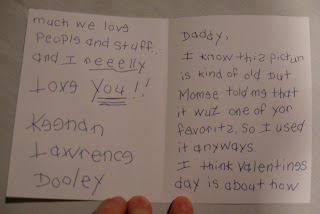 Daddy,
I know thiz pictur
is kind of old but
Momse told me that
it wuz one of yor
favoritz. So I used
it anyways.
I think Valentines
day is about how
much we love
people and stuff.
and I neeelly
Love You!!
Keenan
Lawrence
Dooley